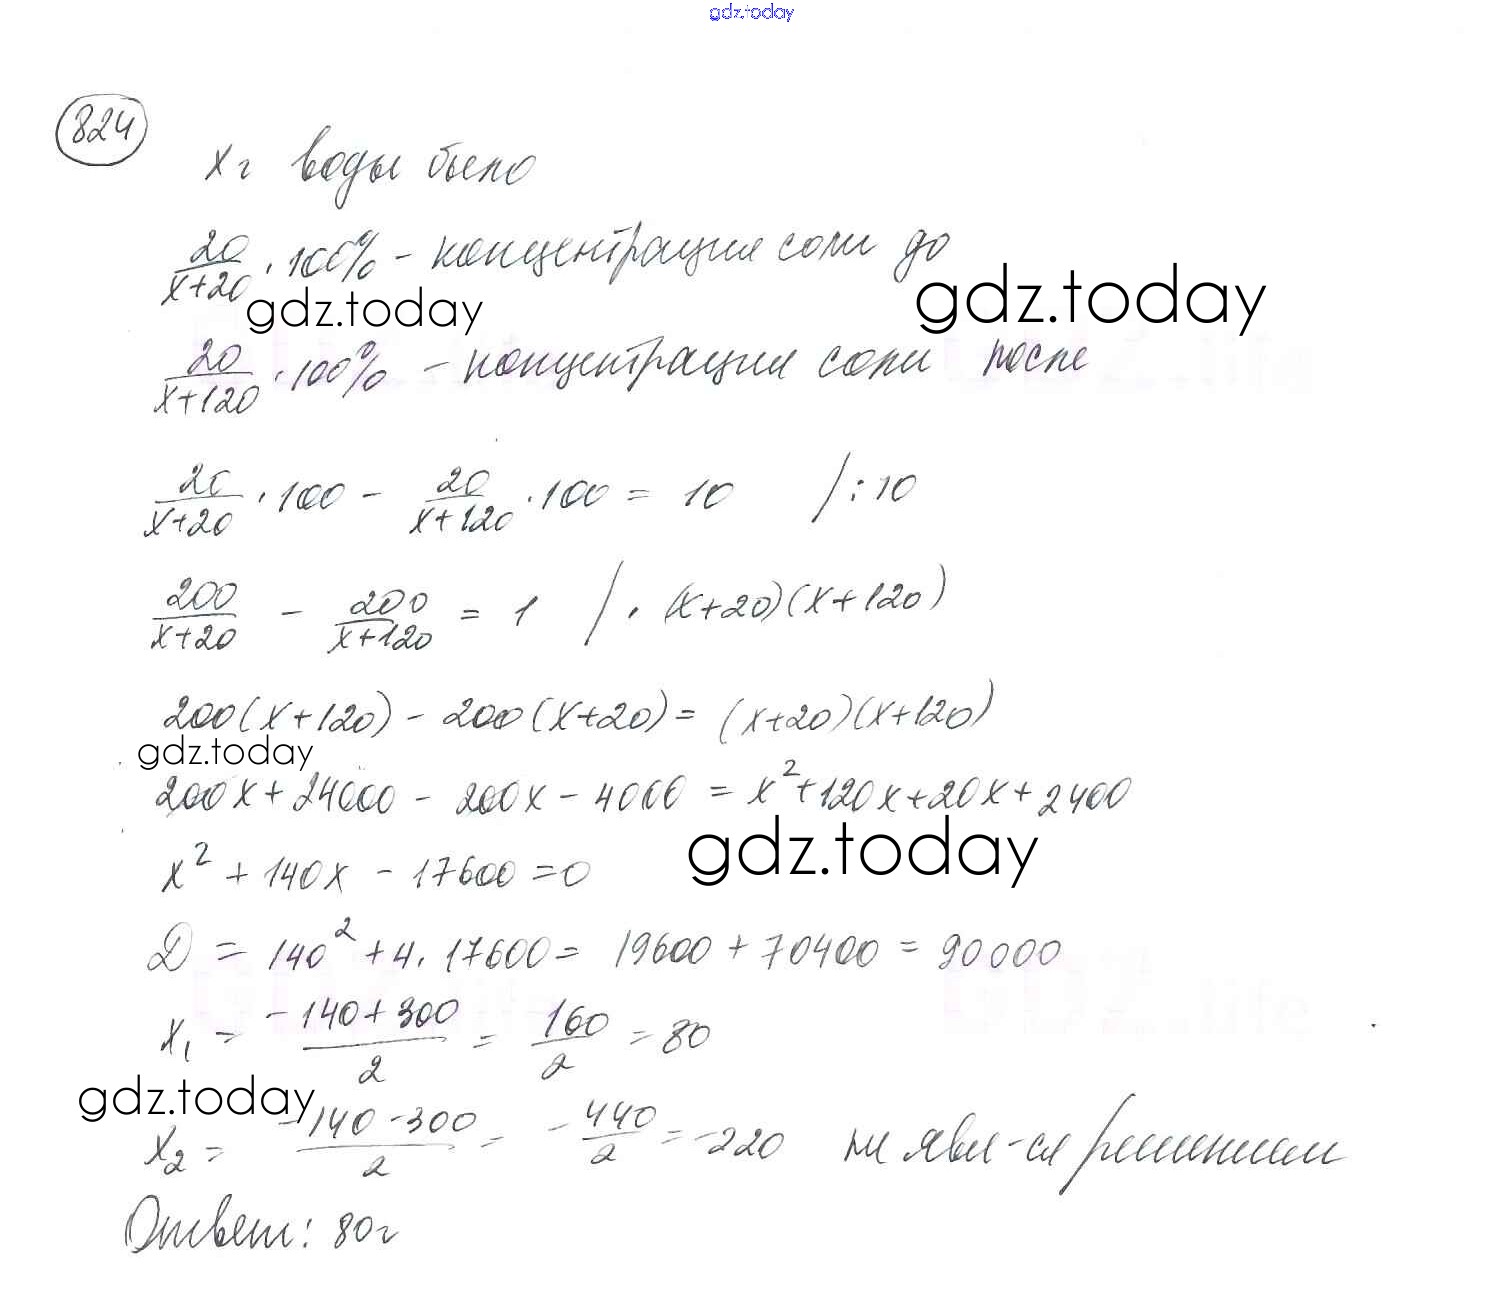 gdz.today
824
x г воды было
20/(x+20) · 100% – концентрация соли до
gdz.today
gdz.today
20/(x+120) · 100% – концентрация соли после
20/(x+20) · 100 – 20/(x+120) · 100 = 10 /:10
200/(x+20) – 200/(x+120) = 1 / · (x+20)(x+120)
200(x+120) – 200(x+20) = (x+20)(x+120)
gdz.today
200x + 24000 – 200x – 4000 = x² + 120x + 20x + 2400
gdz.today
x² + 140x – 17600 = 0
D = 140² + 4 · 17600 = 19600 + 70400 = 90000
x₁ = (–140+300)/2 = 160/2 = 80
gdz.today
x₂ = (–140–300)/2 = –440/2 = –220 не явл-ся решением
Ответ: 80г